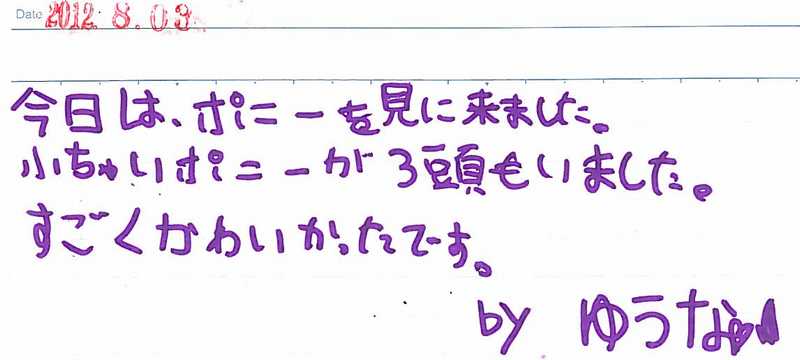 Date 2012. 8. 03
今日は、ポニーを見に来ました。
小ちゃいポニーが3頭もいました。
すごくかわいかったです。
by ゆうな